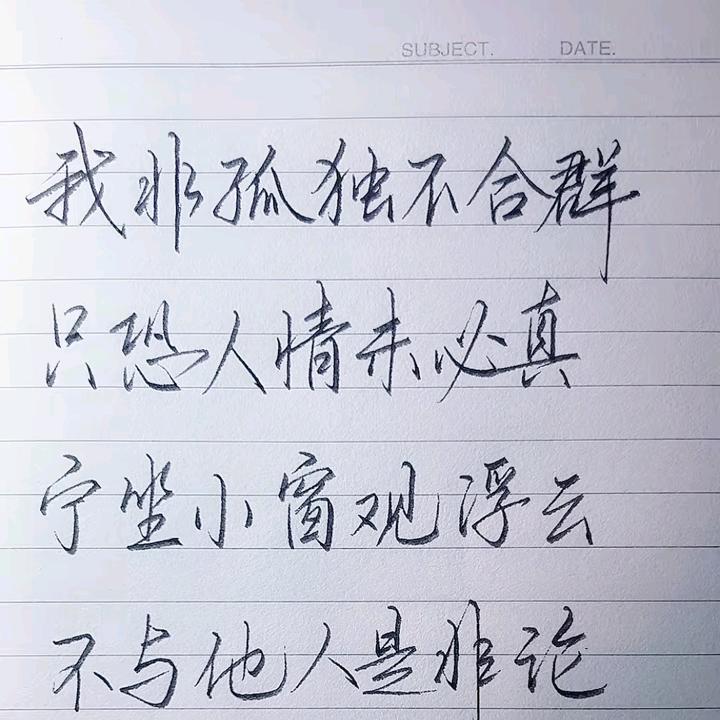 SUBJECT. DATE.
我非孤独不合群
只恐人情未必真
宁坐小窗观浮云
不与他人是非论